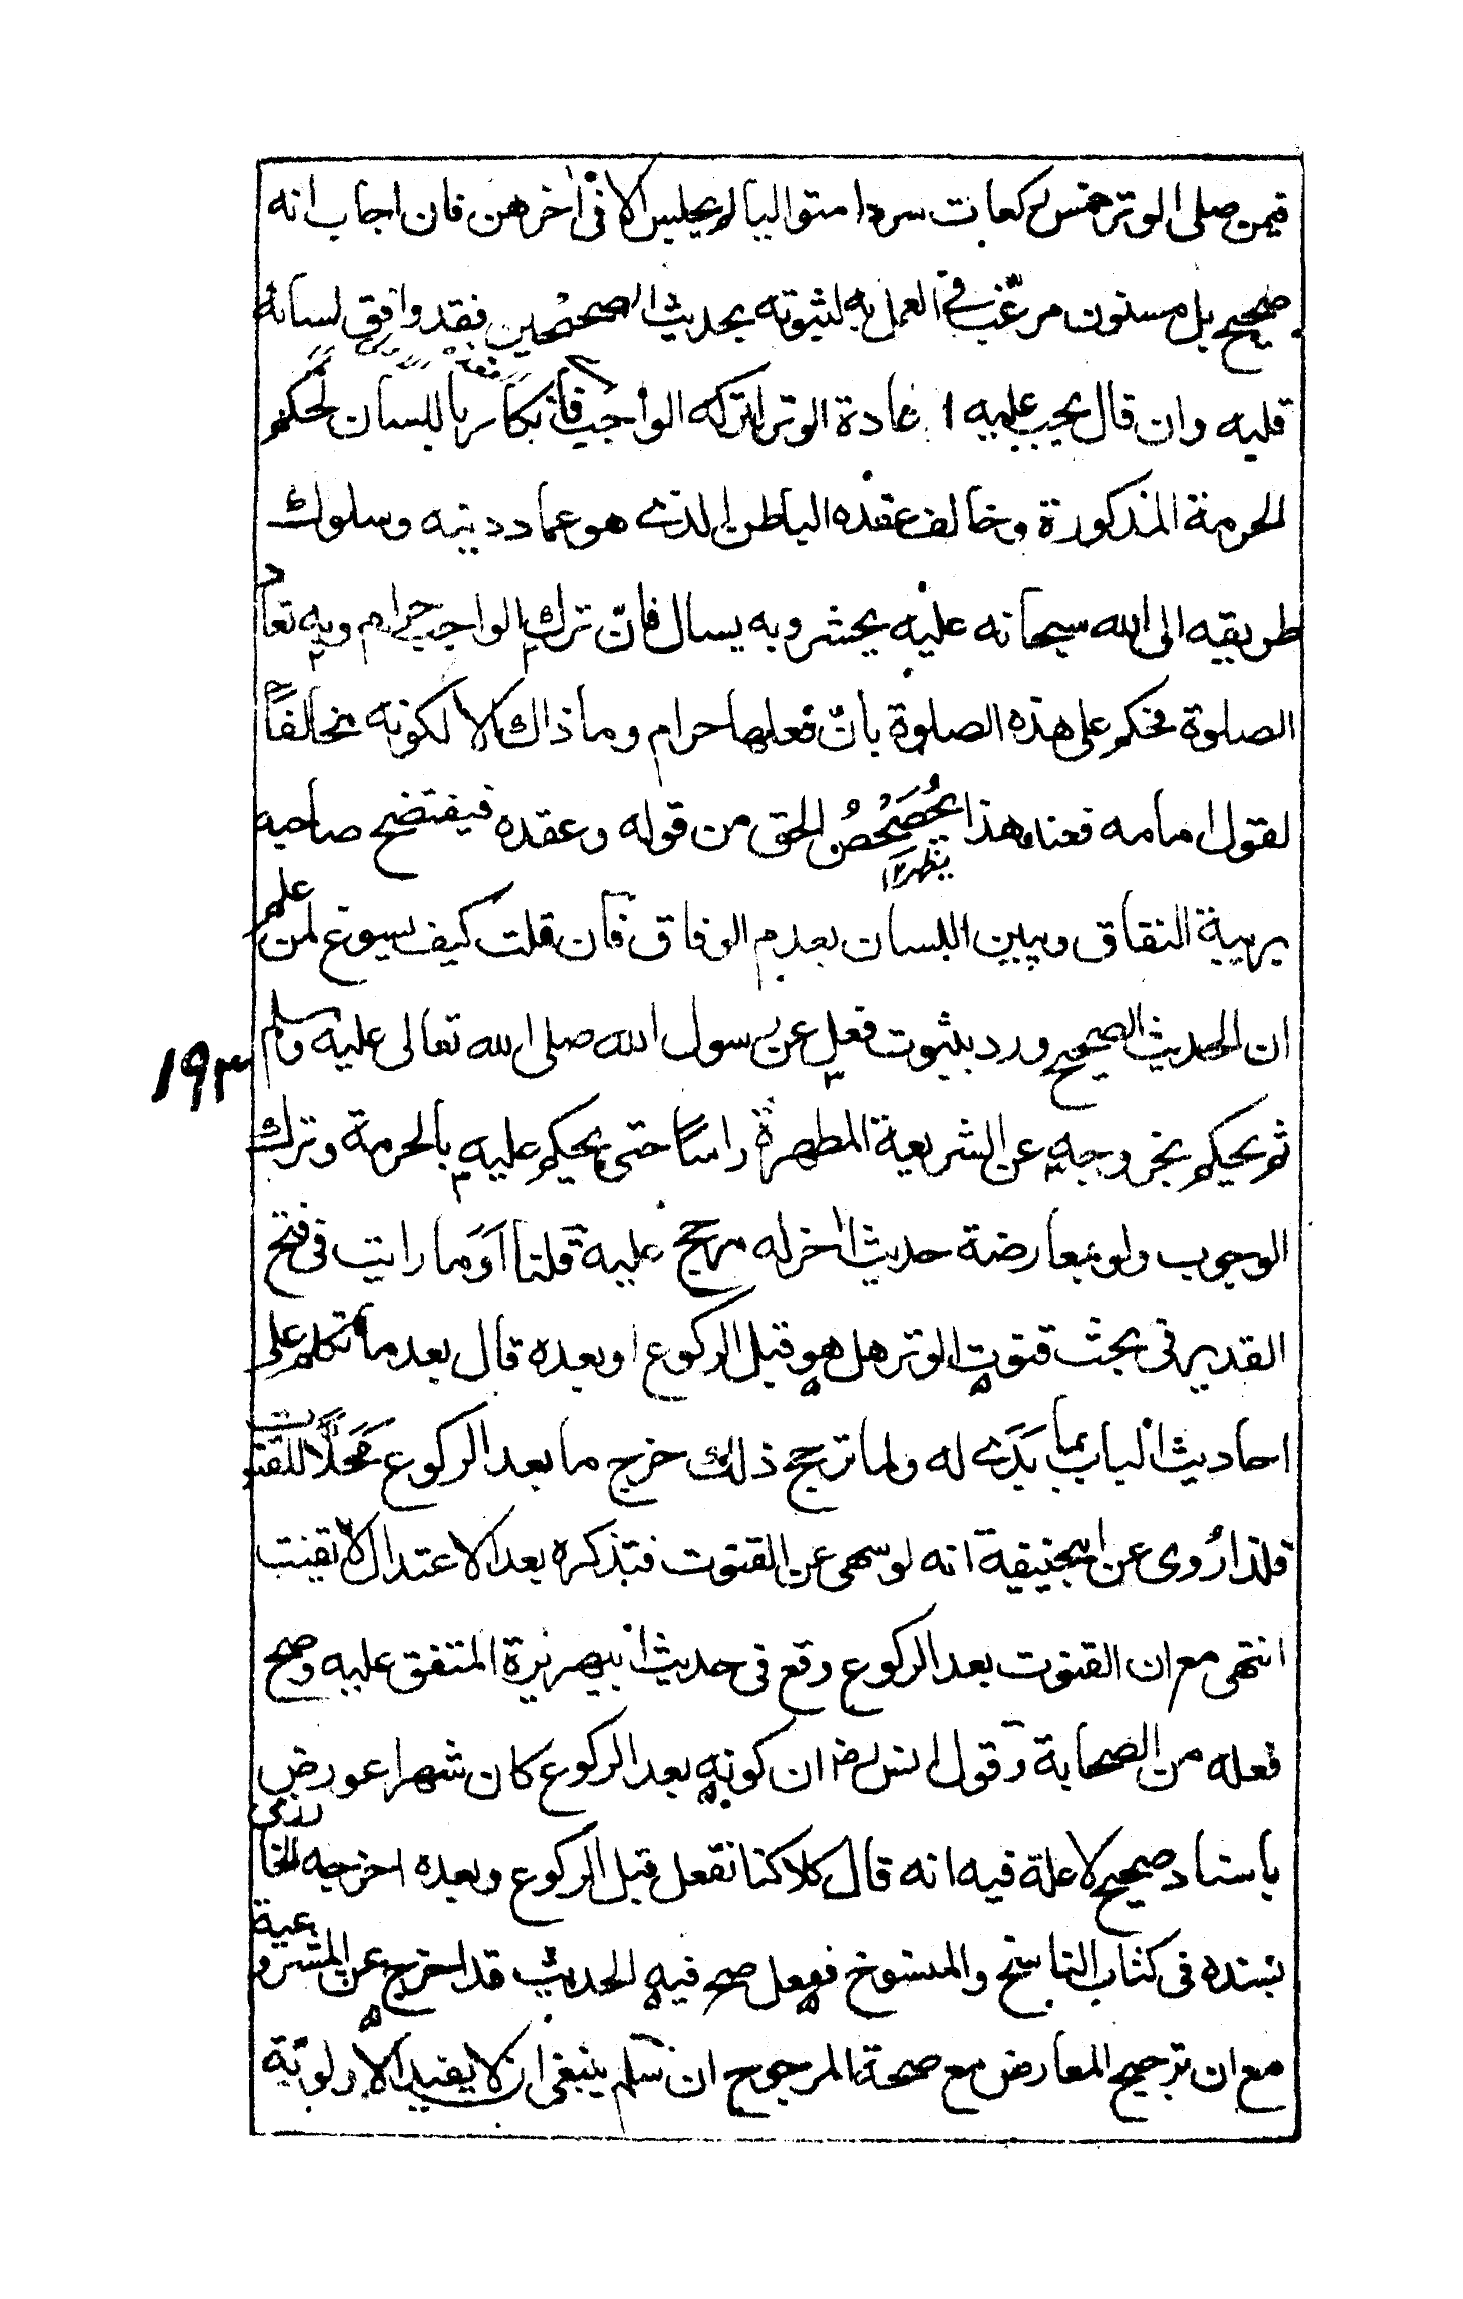 فيمن صلى الوتر خمس ركعات سردا متواليا لم يجلس الا فى اخرهن فان اجاب انه
صحيح بل مسنون مرغّب فى العمل به لثبوته بحديث الصحيحين فقد وافق لسانه
قلبه وان قال يجب عليه اعادة الوتر لتركه الواجب فان كابر باللسان لحكم
الحرمة المذكورة وخالف عقده الباطن الذى هو عماد دينه وسلوك
طريقه الى الله سبحانه عليه يحشر وبه يسال فانّ ترك الواجب حرام وبه تعاد
الصلوة فحكم على هذه الصلوة بانّ فعلها حرام وما ذاك الا لكونه مخالفًا
لقول امامه فعند هذا يُحَصْحِصُ الحق من قوله وعقده فيفتضح صاحبه
يظهر ١٢
بريبة النفاق ويبين اللسان بعدم الوفاق فان قلت كيف يسوغ لمن علم
ان الحديث الصحيح ورد بثبوت فعل عن رسول الله صلى الله تعالى عليه وسلم
١٩٣
ثم يحكم بخروجه عن الشريعة المطهرة راسًا حتى يحكم عليه بالحرمة وترك
الوجوب ولو بمعارضة حديث اخر له مرجح عليه قلنا اَوَما رايت فى فتح
القدير فى بحث قنوت الوتر هل هو قبل الركوع او بعده قال بعد ما تكلم على
احاديث الباب بما بَدَى له ولما ترجح ذلك خرج ما بعد الركوع مَحَلًّا للقنوت
فلذا رُوى عن ابيحنيفة انه لو سهى عن القنوت فتذكره بعد الاعتدال لا يقنت
انتهى مع ان القنوت بعد الركوع وقع فى حديث ابيهريرة المتفق عليه وصح
فعله من الصحابة وقول انس رض ان كونه بعد الركوع كان شهرا عورض
باسناد صحيح لا علة فيه انه قال كلا كنا نفعل قبل الركوع وبعده اخرجه الحازمى
بسنده فى كتاب الناسخ والمنسوخ ففعل صح فيه الحديث قد اخرج عن المشروعية
مع ان ترجيح المعارض مع صحة المرجوح ان سلم ينبغى ان لا يفيد الا الاولويّة